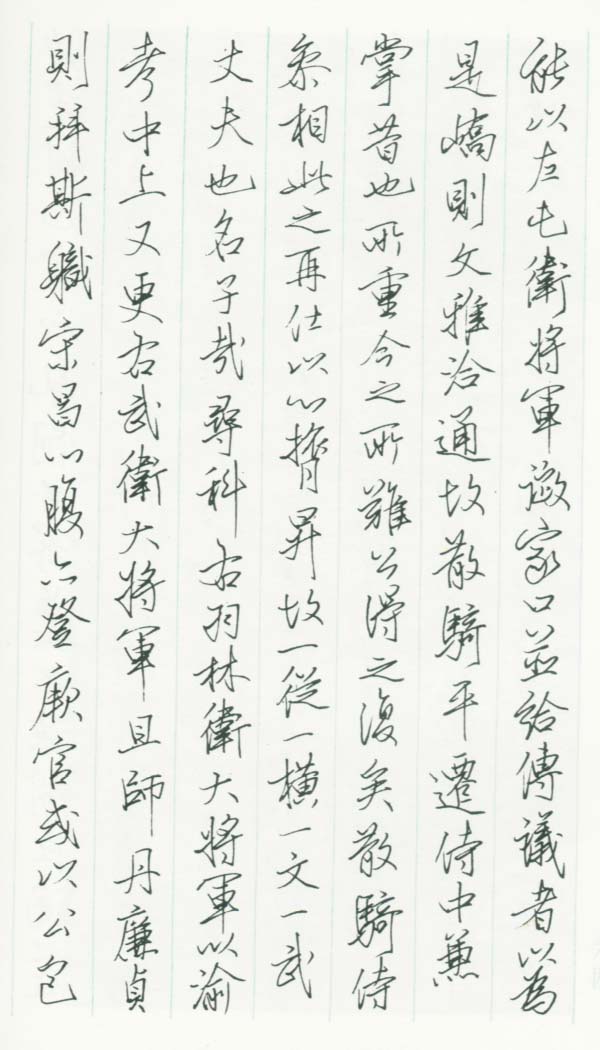 能以左屯衛將軍徵家口並給傳議者以為
是矯則文雅洽通故散騎平遷侍中兼
掌昔也所重今之所難公得之復矣散騎侍
參相此之再仕以心膂昇故一從一橫一文一武
丈夫也名子哉尋科右羽林衛大將軍以渝
考中上又更右武衛大將軍且師丹廉貞
則拜斯職宋昌心腹亦登厥官或以公包